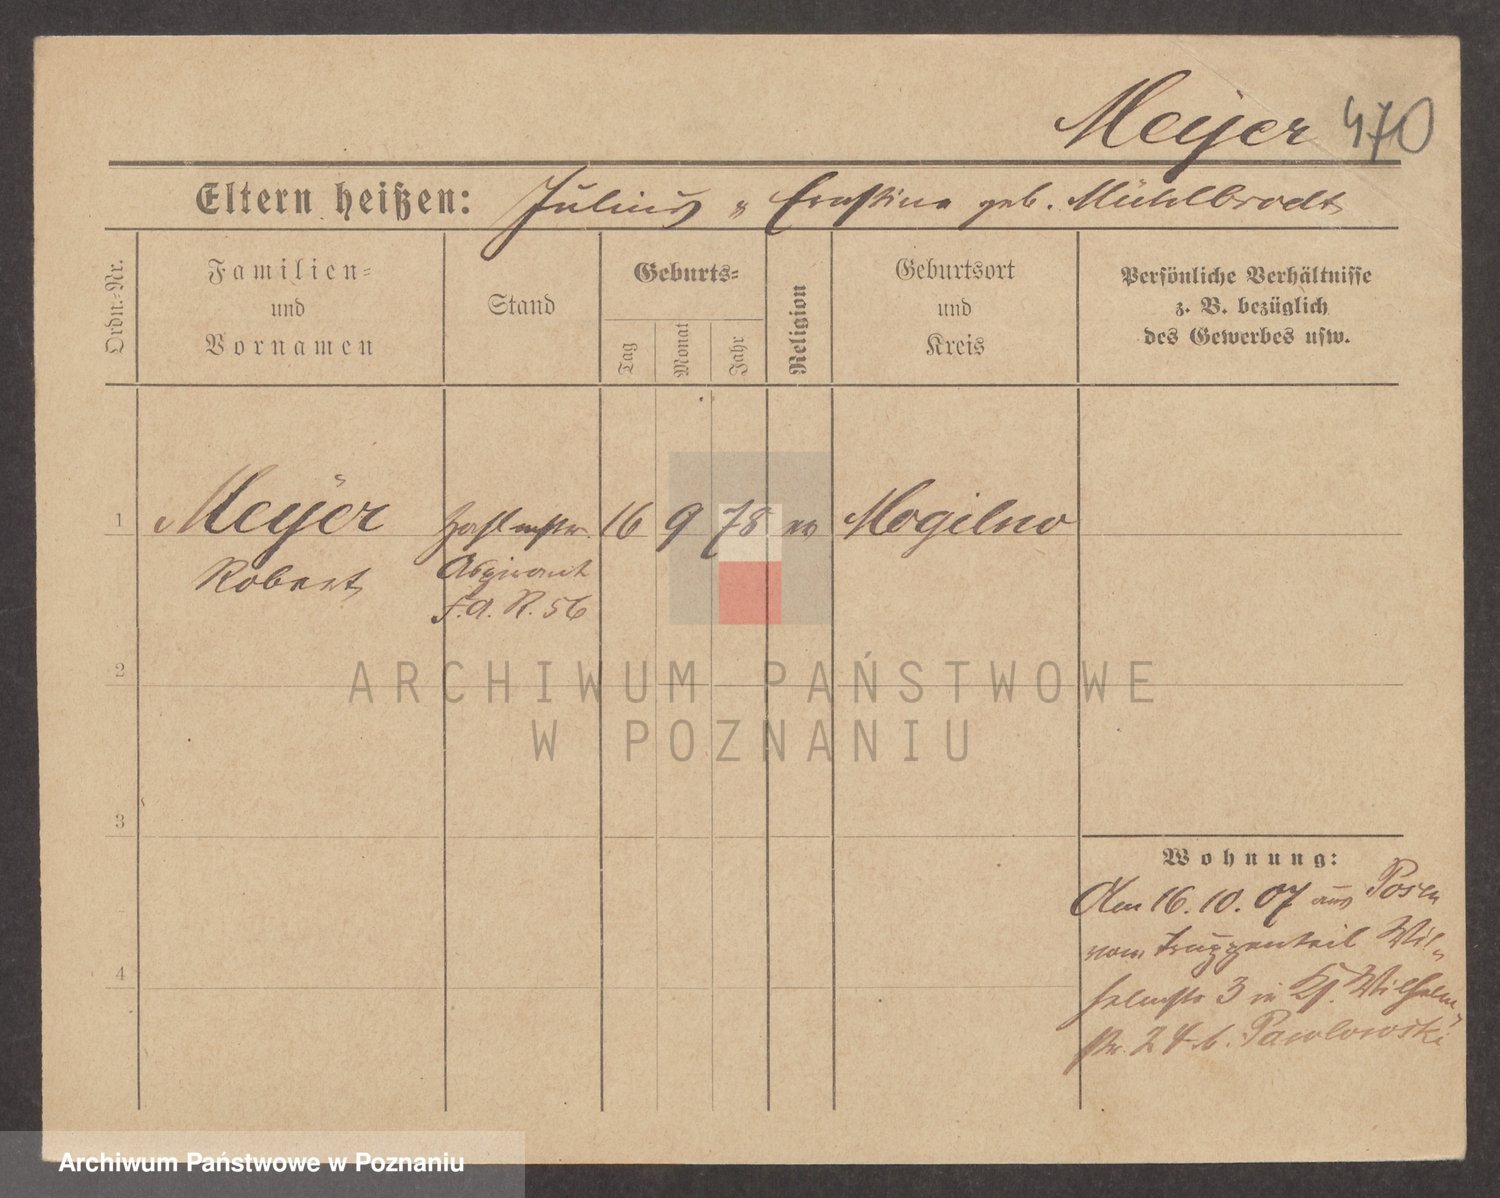 Meyer 470
Eltern heißen: Julius u Ernstine geb. Mühlbrodt
Ordn.-Nr.
Familien-
und
Vornamen
Stand
Geburts-
Tag
Monat
Jahr
Religion
Geburtsort
und
Kreis
Persönliche Verhältnisse
z. B. bezüglich
des Gewerbes usw.
1 Meyer Zahlmstr. 16 9 78 ev Mogilno
Robert Aspirant
F. A. R. 56
2
ARCHIWUM PAŃSTWOWE
W POZNANIU
3
Wohnung:
Am 16. 10. 07 aus Posen
vom Truppenteil Wil-
helmstr 3 in Wilhelm-
str. 24 b. Pawlowski
4
Archiwum Państwowe w Poznaniu